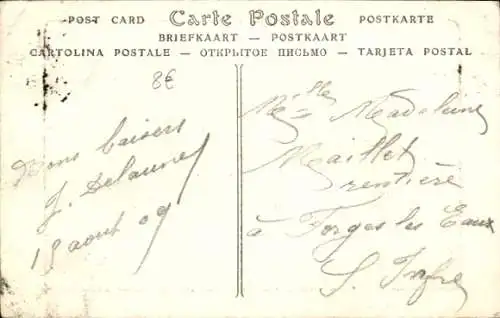 POST CARD Carte Postale POSTKARTE
BRIEFKAART — POSTKAART
CARTOLINA POSTALE — ОТКРЫТОЕ ПИСЬМО — TARJETA POSTAL
8€
Bons baisers
J. Delaunay
19 aout 09
Melle Madeleine
Maillet
rentière
à Forges les Eaux
S. Infre